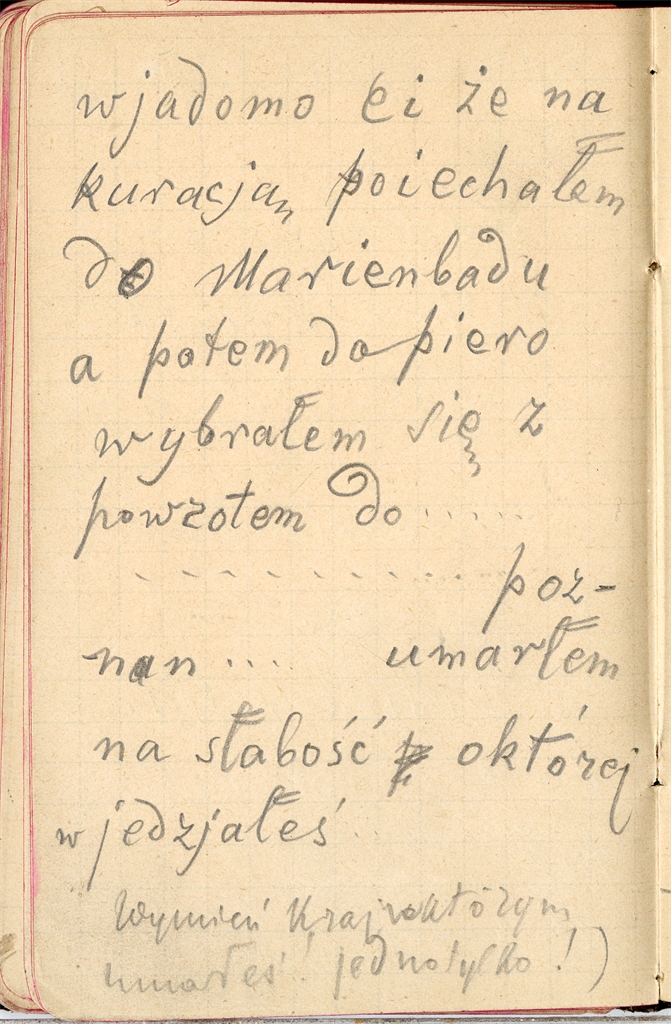 wjadomo ci że na
kuracją poiechałem
do Marienbadu
a potem dopiero
wybrałem się z
powrotem do .....
............. poz-
nan .... umarłem
na słabość októrej
wjedzjałeś
Wymień kraj wktórym
umarłeś! jednotylko!)